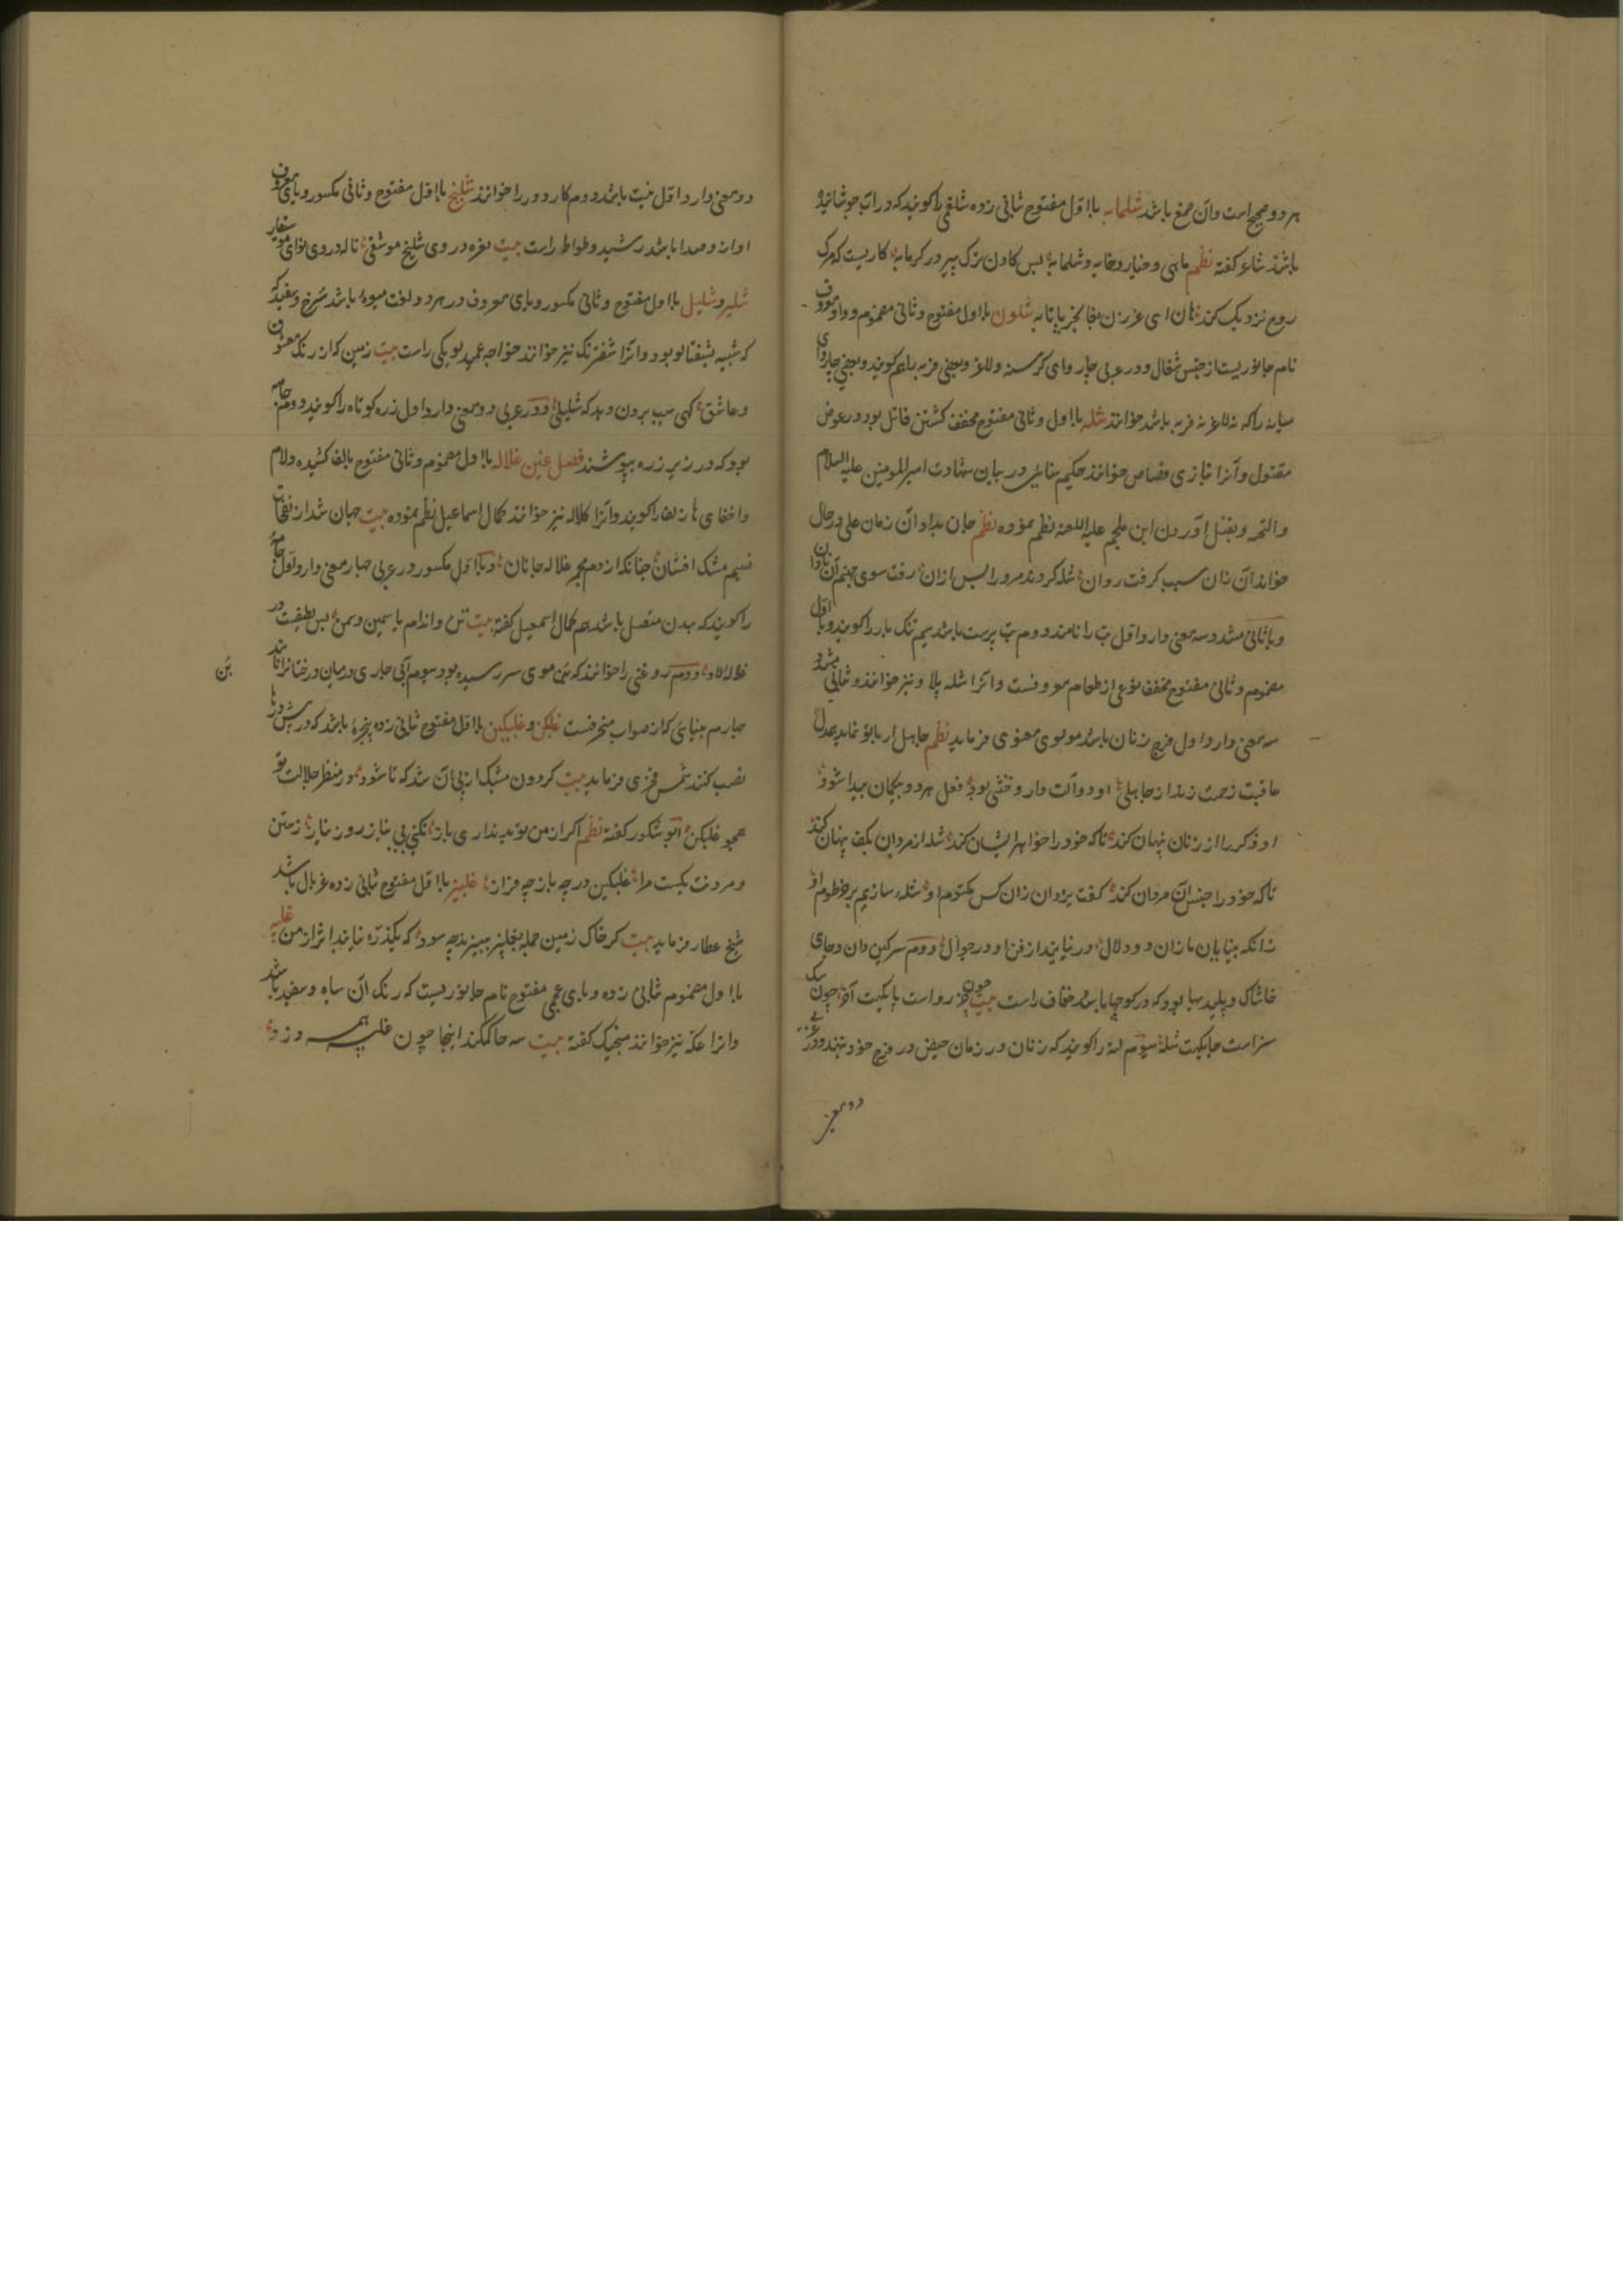 هر دو صحیح است وآن صمغ باشد شلمابه بااول مفتوح ثانی زده شلغمی را کویند که در آب جوشانیده
باشند شاعر کفته نظم ماهی و خیار وخایه وشلمابه پس کادن بزرک پیر در کرمابه کاریست که مرک
روح نزدیک کند هان ای عزیزن شلون بااول مفتوح وثانی مضموم وواو معروف
نام جانوریست از جنس شغال ودر عربی چاروای کرسنه ولاغر وبعضی فربه را هم کویند وبعضی چاروای
میانه را که نه لاغر نه فربه باشد خوانند شله بااول وثانی مفتوح مخفف کشتن قاتل بود در عوض
مقتول وآنرا بتازی قصاص خوانند حکیم سنایی در بیان شهادت امیرالمومنین علیه السلام
والتحیه وبقتل آوردن ابن ملجم علیه اللعنه نظم نموده نظم جان بداد آن زمان علی در حال
خواند آن زان سبب کرفت روان شله کردند مرورا پس ازان رفت سوی جهنم آن نادان
وباثانی مشدد سه معنی دارد اول بت را نامند دوم بت پرست باشد سیم تنک بار را کویند وبااول
مضموم وثانی مفتوح مخفف نوعی از طعام معروفست وآنرا شله پلاو نیز خوانند وثانی مشدد
سه معنی دارد اول فرج زنان باشد مولوی معنوی فرماید نظم جاهل ار باتو نماید همدلی
عاقبت زحمت زند از جاهلی او دو آلت دارد وخنثی بود فعل هر دو بیکمان پیدا شود
او ذکر را از زنان پنهان کند تاکه خود را خواهر ایشان کند شله از مردان بکف پنهان کند
تاکه خود را جنس آن مردان کند کفت یزدان زان کس مکتوم او شله سازیم بر خرطوم او
زانکه بینایان ما زان دو دلال در نیایند از فن او در جوال دوم سرکین دان وجای
خاشاک وپلیدیها بود که در کوچها باشد خفاف راست بیت چون خر رواست پایکهت آخر چون سک
سزاست جایکهت شله سیوم لته را کویند که زنان در زمان حیض در فرج خود نهند ودر عربی
دو معنی
دو معنی دارد اول نیت باشد دوم کار دور را خوانند شلیخ بااول مفتوح وثانی مکسور ویای معروف
اواز وصدا باشد رشید وطواط راست بیت نعره در وی شلیخ موسیقی ناله در وی نوای موسیقار
شلیر وشلیل بااول مفتوح وثانی مکسور ویای معروف در هر دو لغت میوهٔ باشد سرخ وسفید که
که شبیه بشفتالو بود وآنرا شفترنک نیز خوانند خواجه عمید لویکی راست بیت زمین که از رنک معشوق
وعاشق کهی سیب برون دهد که شلیلی ودر عربی دو معنی دارد اول زره کوتاه را کویند دوم جامه
بود که در زیر زره بپوشند فصل غین غلاله بااول مضموم وثانی مفتوح بالف کشیده ولام
واخفای ها زلف را کویند وآنرا کلاله نیز خوانند کمال اسماعیل نظم نموده بیت جهان شد از نفحات
نسیم مشک افشان چنانکه از دم مجمر غلاله جانان وبااول مکسور در عربی چهار معنی دارد اول جامهٔ
را کویند که ببدن متصل باشد هم کمال اسمعیل کفته بیت تن واندام یاسمین وسمن بس لطیفت در
غلالهٔ لاد دوم روغنی را خوانند که بن موی سر رسیده بود سیوم آبی جاری در میان درختانرا نامند
بن
چهارم بنیائی که از صواب منحرفست غلبکن وغلبکین بااول مفتوح ثانی زده پنجرهٔ باشد که در پیش درها
نصب کنند شمس فخری فرماید بیت کردون مشبک از پی آن شد که تا شود در منظر جلالت تو
همچو غلبکن ابوشکور کفته نظم اکر از من تو بد نداری باز نکنی بی نیاز روز نیاز نه زمن
ومردنت یکیست مرا غلبکین در چه باز چه فراز غلبیز بااول مفتوح ثانی زده غربال باشد
شیخ عطار فرماید بیت کر خاک زمین جمله بغلبیز ببیزند چه سود که یکذره نیابند اثر از من غلبه
بااول مضموم ثانی زده وبای عجمی مفتوح نام جانوریست که رنک آن سیاه وسفید باشد
وانرا عکه نیز خوانند منجیک کفته بیت سه حاکمکند اینجا چون غلبه همه دزد